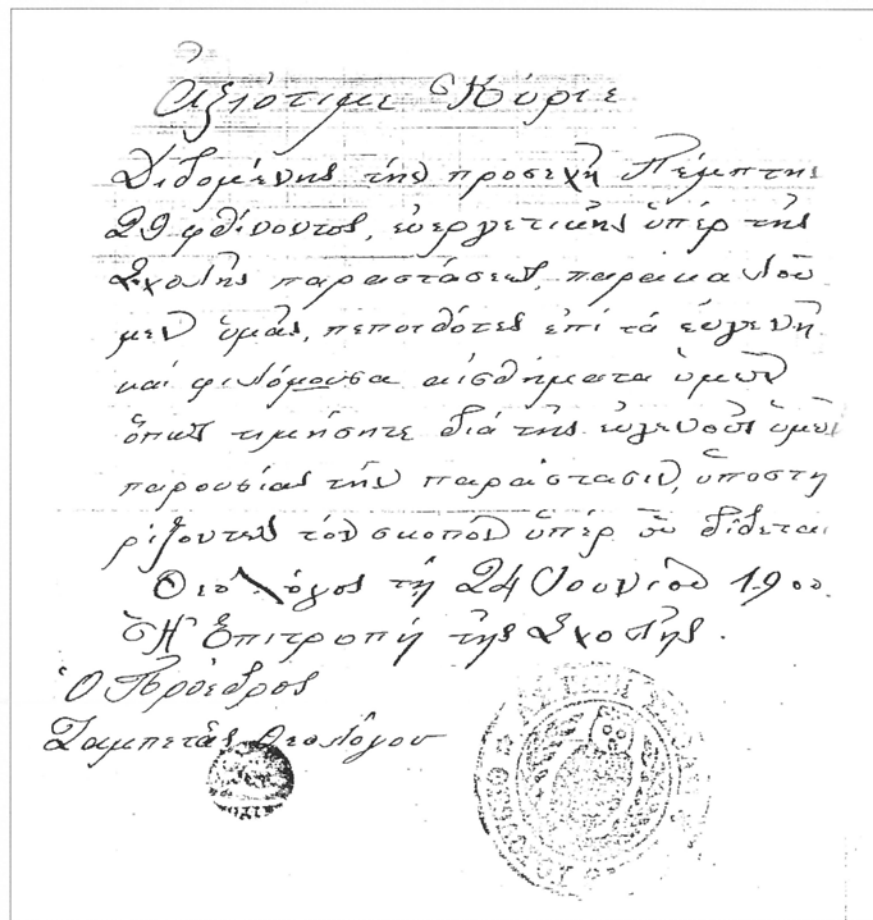 Ἀξιότιμε Κύριε
Διδομένης τήν προσεχῆ Πέμπτην
29 φθίνοντος, εὐεργετικῆς ὑπέρ τῆς
Σχολῆς παραστάσεως, παρακαλοῦ
μεν ὑμᾶς, πεποιθότες ἐπί τά εὐγενῆ
καί φιλόμουσα αἰσθήματα ὑμῶν
ὅπως τιμήσητε διά τῆς εὐγενοῦς ὑμῶν
παρουσίας τήν παράστασιν, ὑποστη
ρίζοντες τόν σκοπόν ὑπέρ οὗ δίδεται
Θεολόγος τῇ 24 Ἰουνίου 1900.
Ἡ Ἐπιτροπή τῆς Σχολῆς.
Ὁ Πρόεδρος
Ζαμπετᾶς Θεολόγου